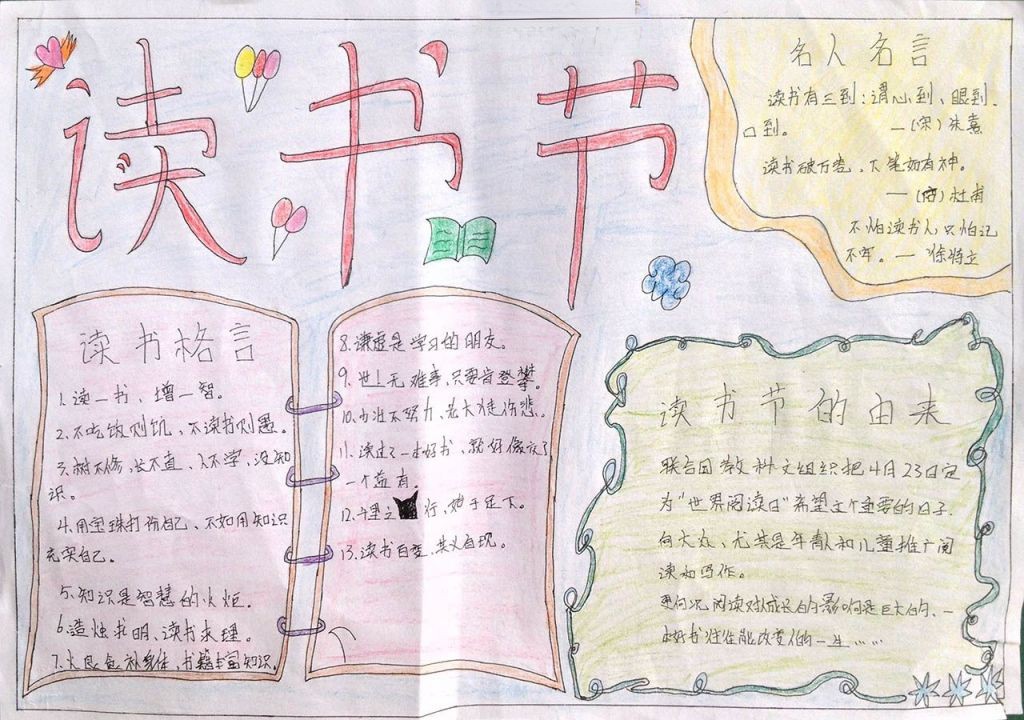 读书节
名人名言
读书有三到：谓心到、眼到、
口到。 —（宋）朱熹
读书破万卷，下笔如有神。
—（唐）杜甫
不怕读书人，只怕记
不牢。— 徐特立
读书格言
1、读一书，增一智。
2、不吃饭则饥，不读书则愚。
3、树不修，长不直，人不学，没知
识。
4、用宝珠打扮自己，不如用知识
充实自己。
5、知识是智慧的火炬。
6、造烛求明，读书求理。
7、大鱼 补身体，书籍丰富知识。
8、谦虚是学习的朋友。
9、世上无难事，只要肯登攀。
10、少壮不努力，老大徒伤悲。
11、读过了一本好书，就好像交了
一个益友。
12、千里之 行，始于足下。
13、读书百变，其义自现。
读书节的由来
联合国教科文组织把4月23日定
为“世界阅读日”希望这个重要的日子.
向大众、尤其是年青人和儿童推广阅
读和写作。
更何况阅读对成长的影响是巨大的、一
本好书往往能改变人的一生……